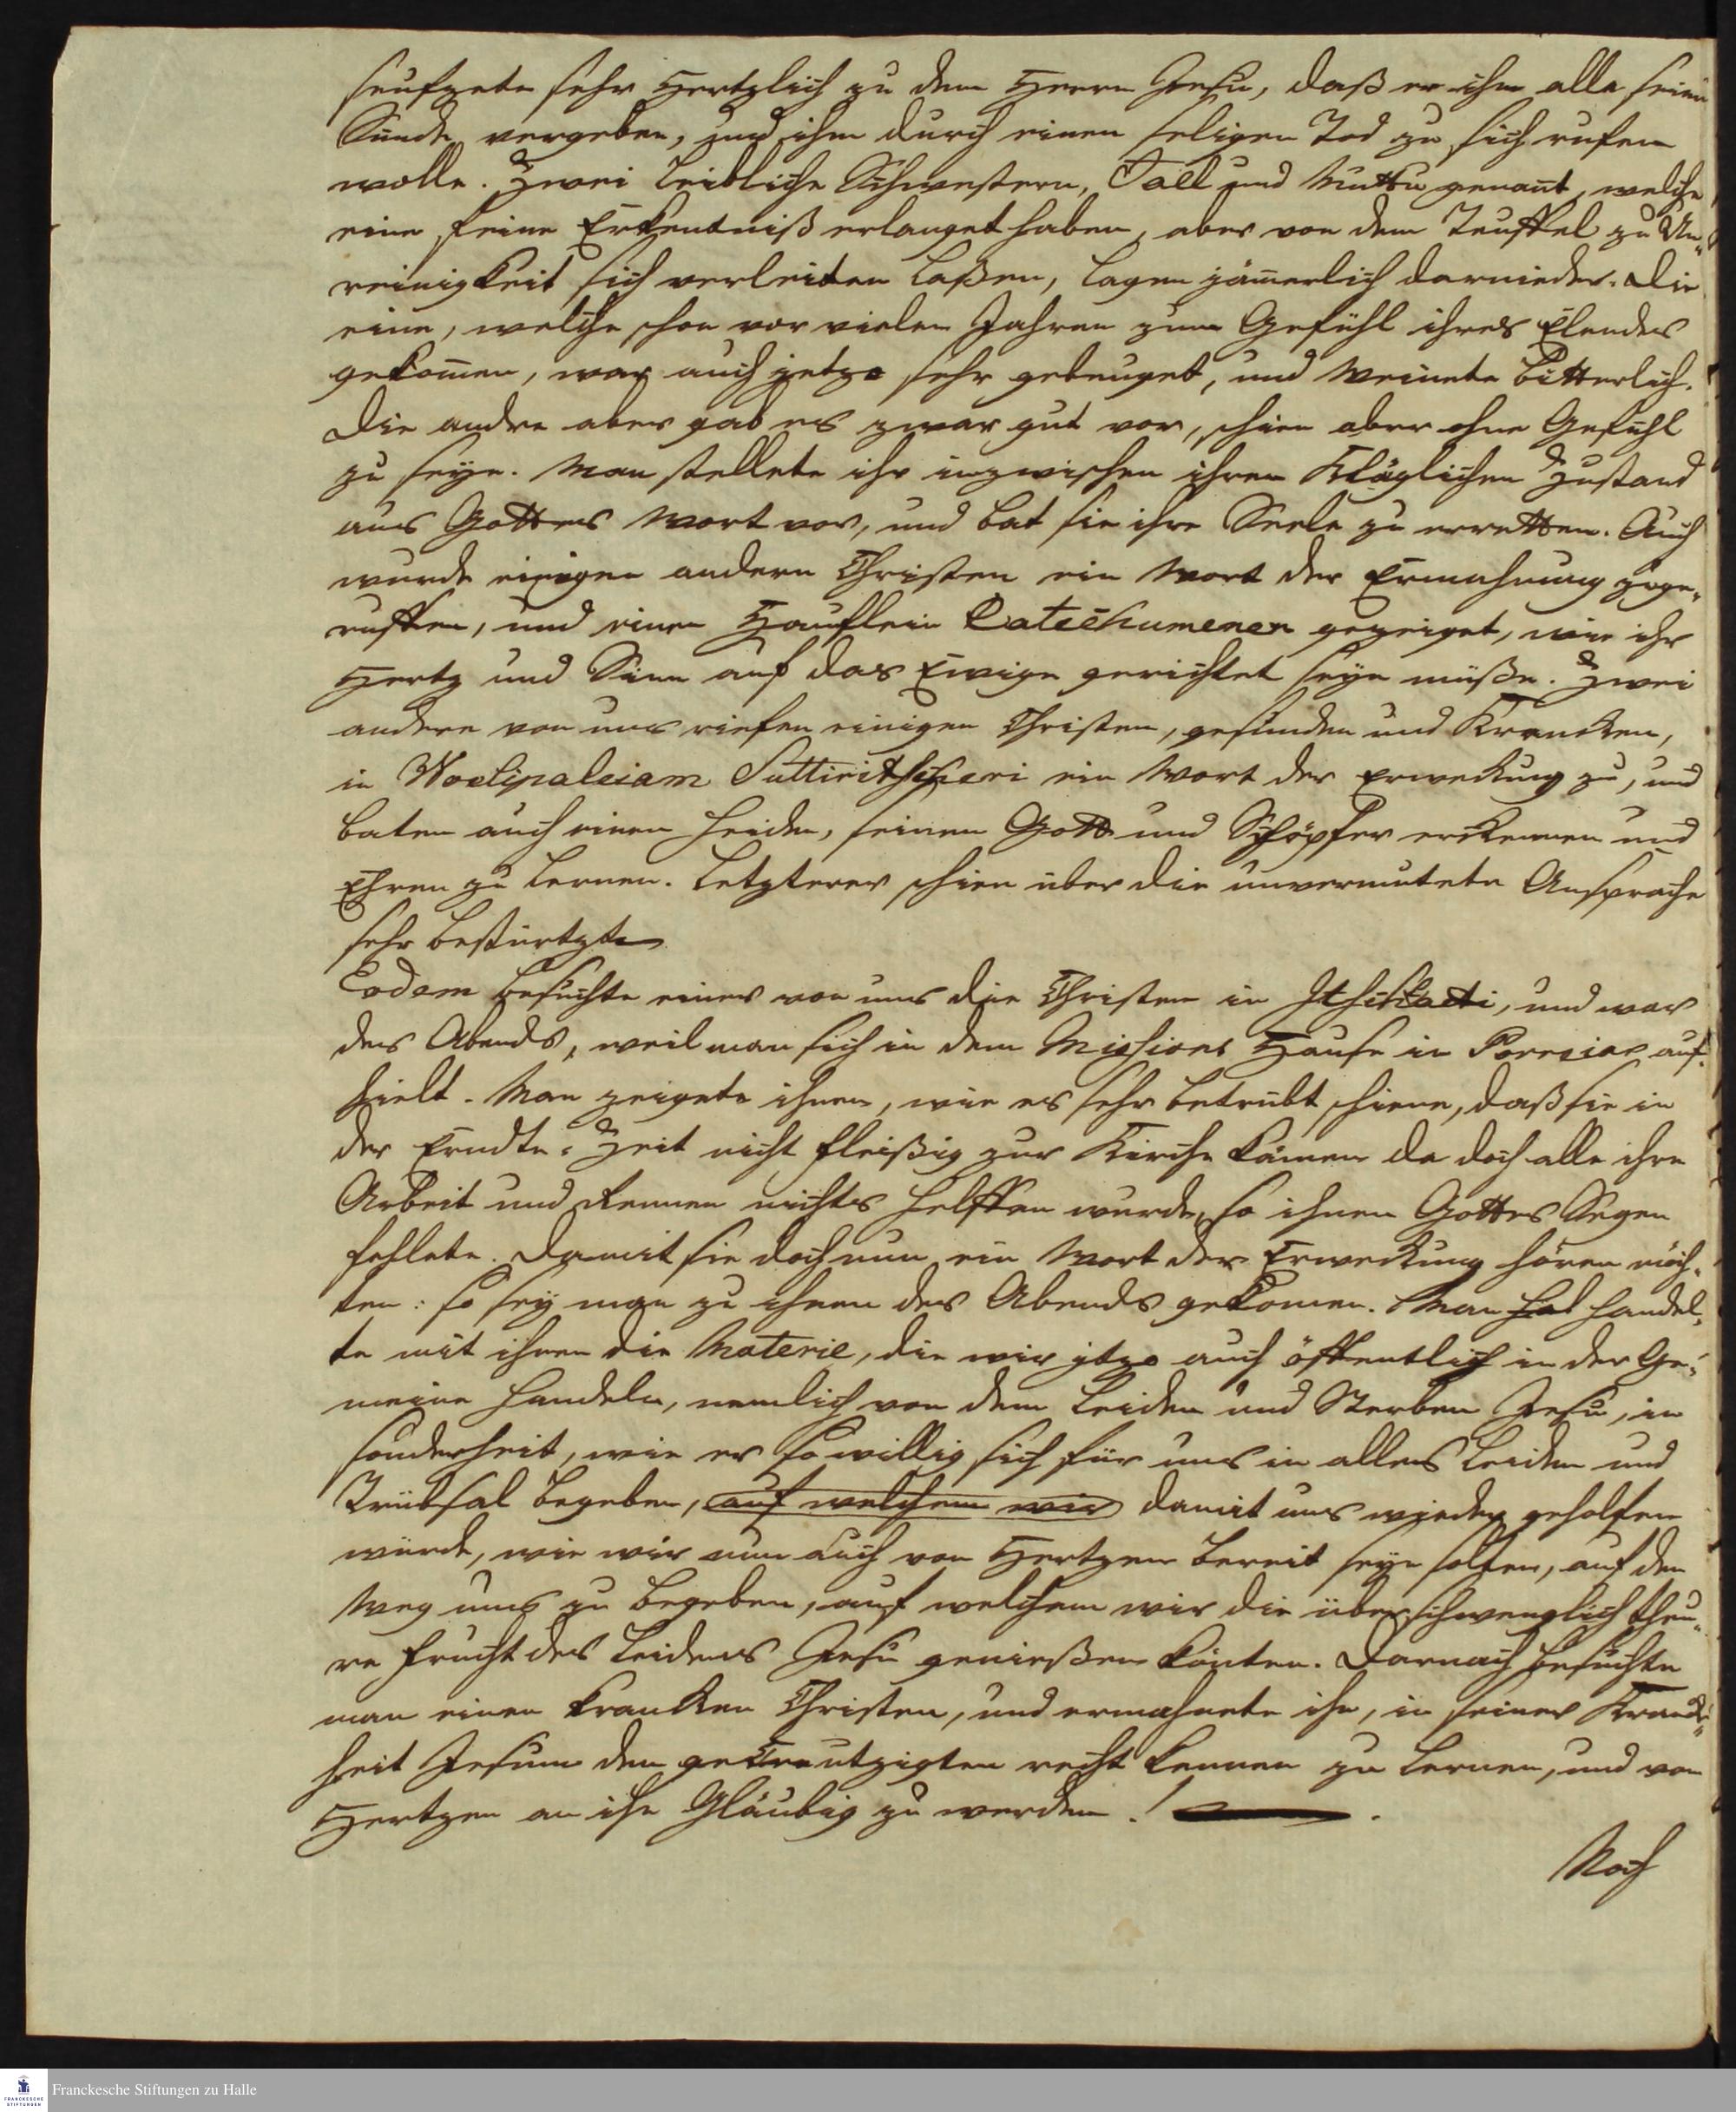 seufzete sehr Hertzlich zu dem Herrn Jesu, daß er ihm alle seine
Sünde vergeben, und ihn durch einen seligen Tod zu sich rufen
wolle. Zwei leibliche Schwestern, Tall und Muttu genant, welche
eine feine Erkentniß erlanget haben, aber von dem Teuffel zu Un-
reinigkeit sich verleiten laßen, lagen jämerlich darnieder. Die
eine, welche schon vor vielen Jahren zum Gefühl ihres Elendes
gekomen, war auch jetzo sehr gebeuget, und weinete bitterlich.
Die andre aber gab es zwar gut vor, schien aber ohne Gefühl
zu seyn. Man stellete ihr inzwischen ihren kläglichen Zustand
aus Gottes Wort vor, und bat sie ihre Seele zu erretten. Auch
wurde einigen andern Christen ein Wort der Ermahnung zuge-
ruffen, und einem Häuflein Catechumenen gezeiget, wie ihr
Hertz und Sinn auf das Ewige gerichtet seyn müße. Zwei
andere von uns riefen einigen Christen, gesunden und Krancken,
in Woelipaleiam Suttiritscheri ein Wort der Erweckung zu, und
baten auch einen Heiden, seinen Gott und Schöpfer erkennen und
Ehren zu lernen. Letzterer schien über die unvermutete Ansprache
sehr bestürtzt.
Eodem besuchte einer von uns die Christen in Itschikatti, und war
des Abends, weil man sich in dem Missions Hause in Poreiar auf-
hielt. Man zeigete ihnen, wie es sehr betrübt schiene, daß sie in
der Erndte-Zeit nicht fleißig zur Kirche kämen da doch alle ihre
Arbeit und Rennen nichts helffen würde, so ihnen Gottes Segen
fehlete. Damit sie doch nun ein Wort der Erweckung hören möch-
ten: so sey man zu ihnen des Abends gekomen. Man hal handel-
te mit ihnen die Materie, die wir jtzo auch öffentlich in der Ge-
meine handeln, nemlich von dem Leiden und Sterben Jesu, in
sonderheit, wie er so willig sich für uns in alles Leiden und
Trübsal begeben, auf welchem wir damit uns wieder geholfen
würde, wie wir nun auch von Hertzen bereit seyn solten, auf den
Weg uns zu begeben, auf welchem wir die überschwenglich theu-
re Frucht des Leidens Jesu genießen könten. Darnach besuchte
man einen krancken Christen, und ermahnete ihn, in seiner Kranck-
heit Jesum den gecreutzigten recht kennen zu lernen, und von
Hertzen an ihn Gläubig zu werden!
Noch
FRANCKESCHE STIFTUNGEN
Franckesche Stiftungen zu Halle